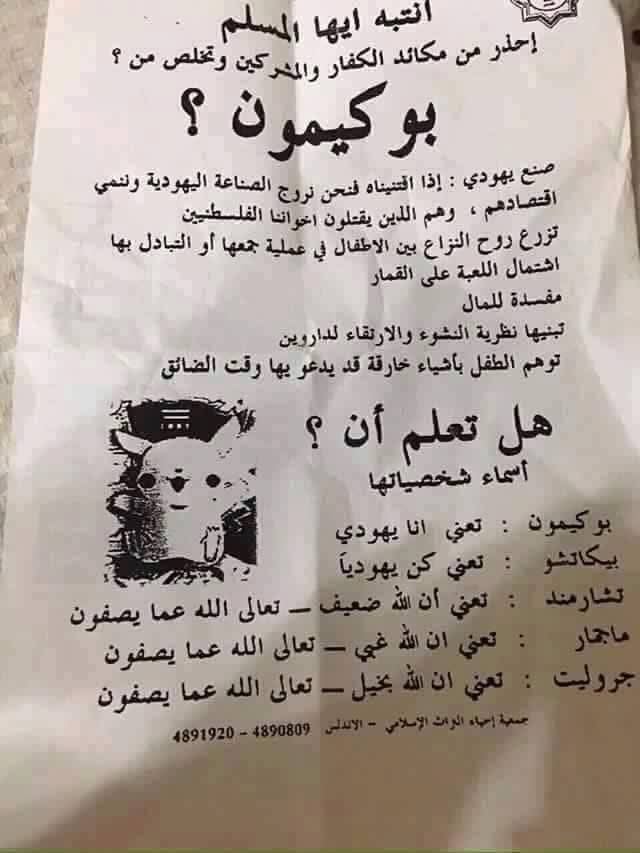 انتبه ايها المسلم
إحذر من مكائد الكفار والمشركين وتخلص من ؟
بوكيمون ؟
صنع يهودي : إذا اقتنيناه فنحن نروج الصناعة اليهودية وننمي
اقتصادهم ، وهم الذين يقتلون اخواننا الفلسطنيين
تزرع روح النزاع بين الاطفال في عملية جمعها أو التبادل بها
اشتمال اللعبة على القمار
مفسدة للمال
تبنيها نظرية النشوء والارتقاء لداروين
توهم الطفل بأشياء خارقة قد يدعو بها وقت الضائق
هل تعلم أن ؟
أسماء شخصياتها
بوكيمون : تعني انا يهودي
بيكاتشو : تعني كن يهودياً
تشارمند : تعني أن الله ضعيف ــ تعالى الله عما يصفون
ماجمار : تعني ان الله غبي ــ تعالى الله عما يصفون
جروليت : تعني ان الله بخيل ــ تعالى الله عما يصفون
جمعية إحياء التراث الإسلامي - الاندلس 4890809 - 4891920